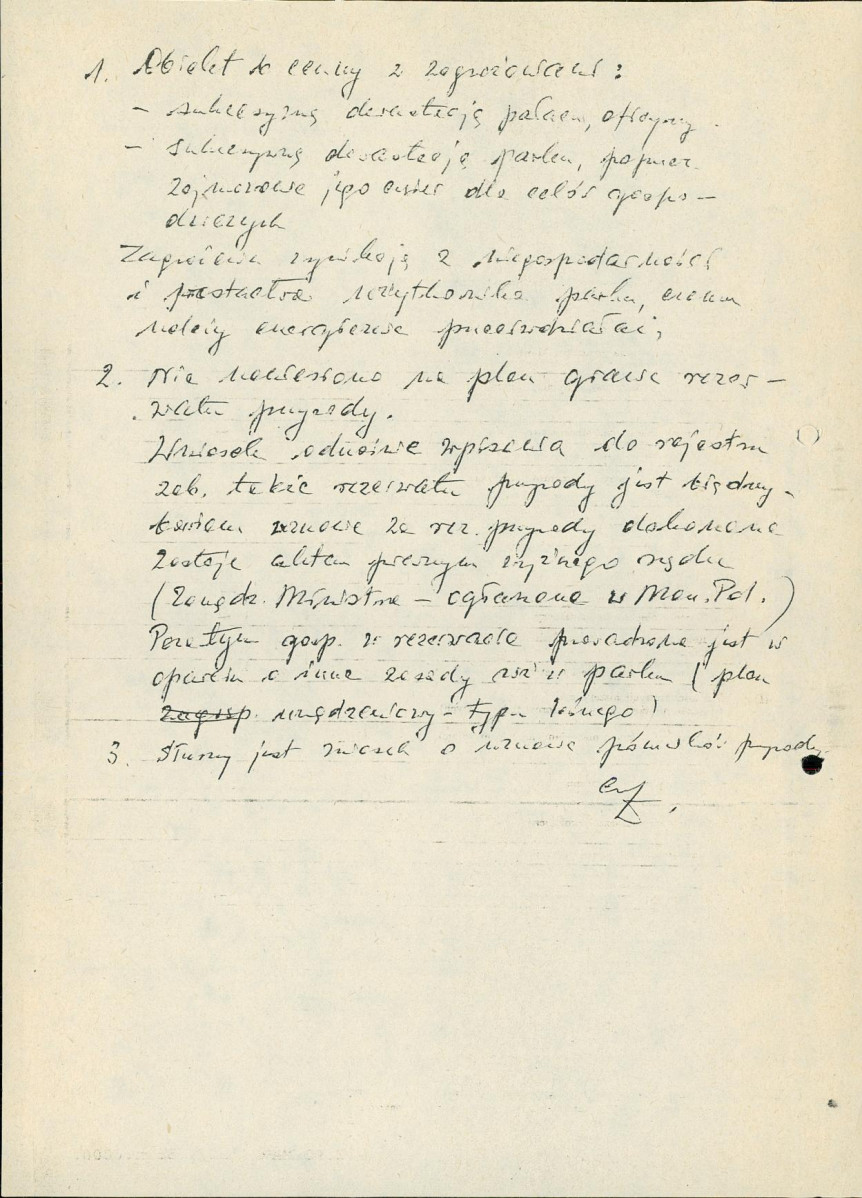 1. Obiekt b. cenny z zagrożeniami:
- sukcesywną dewastacją pałacu, oficyny.
- sukcesywną dewastacją parku, poprzez
zajmowanie jego części dla celów gospo-
darczych
Zagrożenia wynikają z niegospodarności
i użytkownika parku, czemu
należy energicznie przeciwdziałać,
2. Nie naniesiono na plan granic rezer-
watu przyrody.
Wniosek odnośnie wpisania do rejestru
zab. także rezerwatu przyrody jest błędny.
uznanie za rez. przyrody dokonane
zostaje aktem prawnym wyższego rzędu
(Zarządz. Ministra - ogłaszane w Mon. Pol.)
Poza tym gosp. w rezerwacie prowadzona jest w
oparciu o inne zasady niż w parku (plan
zagosp. urządzeniowy - typu leśnego)
3. Słuszny jest wniosek o uznanie pomników przyrody.